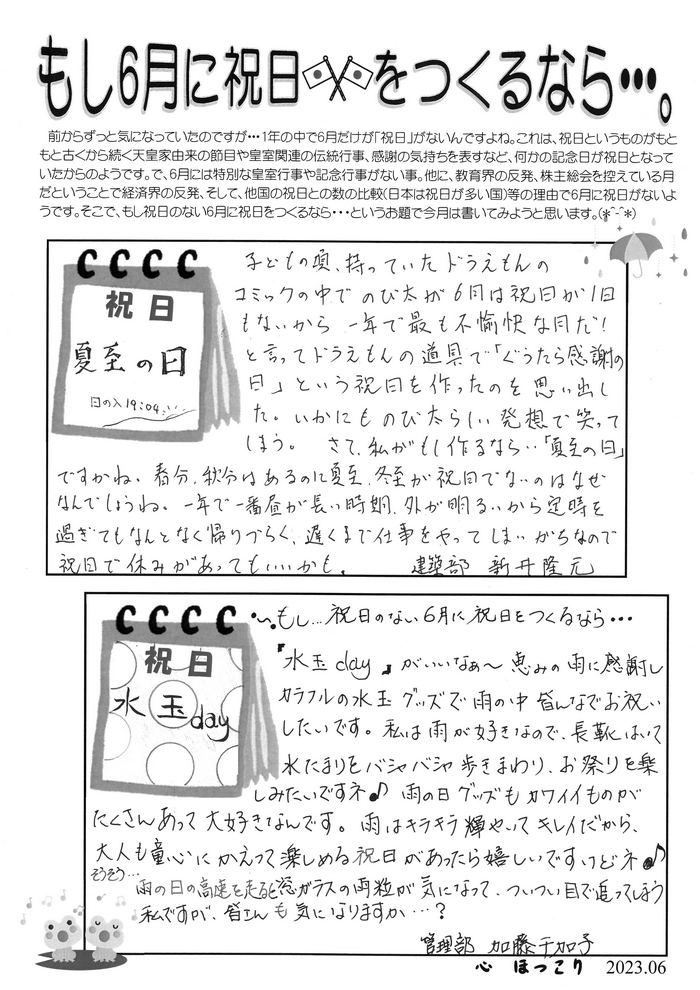 もし6月に祝日をつくるなら…。
前からずっと気になっていたのですが・・・1年の中で6月だけが「祝日」がないんですよね。これは、祝日というものがもと
もと古くから続く天皇家由来の節目や皇室関連の伝統行事、感謝の気持ちを表すなど、何かの記念日が祝日となって
いたからのようです。で、6月には特別な皇室行事や記念行事がない事。他に、教育界の反発、株主総会を控えている月
だということで経済界の反発、そして、他国の祝日との数の比較(日本は祝日が多い国)等の理由で6月に祝日がないよ
うです。そこで、もし祝日のない6月に祝日をつくるなら・・・というお題で今月は書いてみようと思います。(*^-^*)
祝日
夏至の日
日の入19:04
子どもの頃、持っていたドラえもんの
コミックの中でのび太が6月は祝日が1日
もないから一年で最も不愉快な月だ!
と言ってドラえもんの道具で「ぐうたら感謝の
日」という祝日を作ったのを思い出し
た。いかにものび太らしい発想で笑って
しまう。さて、私がもし作るなら…「夏至の日」
ですかね。春分、秋分はあるのに夏至、冬至が祝日でないのはなぜ
なんでしょうね。一年で一番昼が長い時期、外が明るいから定時を
過ぎてもなんとなく帰りづらく、遅くまで仕事をやってしまいがちなので
祝日で休みがあってもいいかも。 建築部 新井隆元
祝日
水玉day
もし…祝日のない6月に祝日をつくるなら・・・
『水玉day』がいいなぁ〜恵みの雨に感謝し
カラフルの水玉グッズで雨の中皆んなでお祝い
したいです。私は雨が好きなので、長靴はいて
水たまりをバシャバシャ歩きまわり、お祭りを楽
しみたいですネ♪雨の日グッズもカワイイものが
たくさんあって大好きなんです。雨はキラキラ輝やいてキレイだから、
大人も童心にかえって楽しめる祝日があったら嬉しいですけどネ♪
そうそう…
雨の日の高速を走ると窓ガラスの雨粒が気になって、ついつい目で追ってしまう
私ですが、皆さんも気になりますか…?
管理部 加藤千加子
心 ほっこり 2023.06